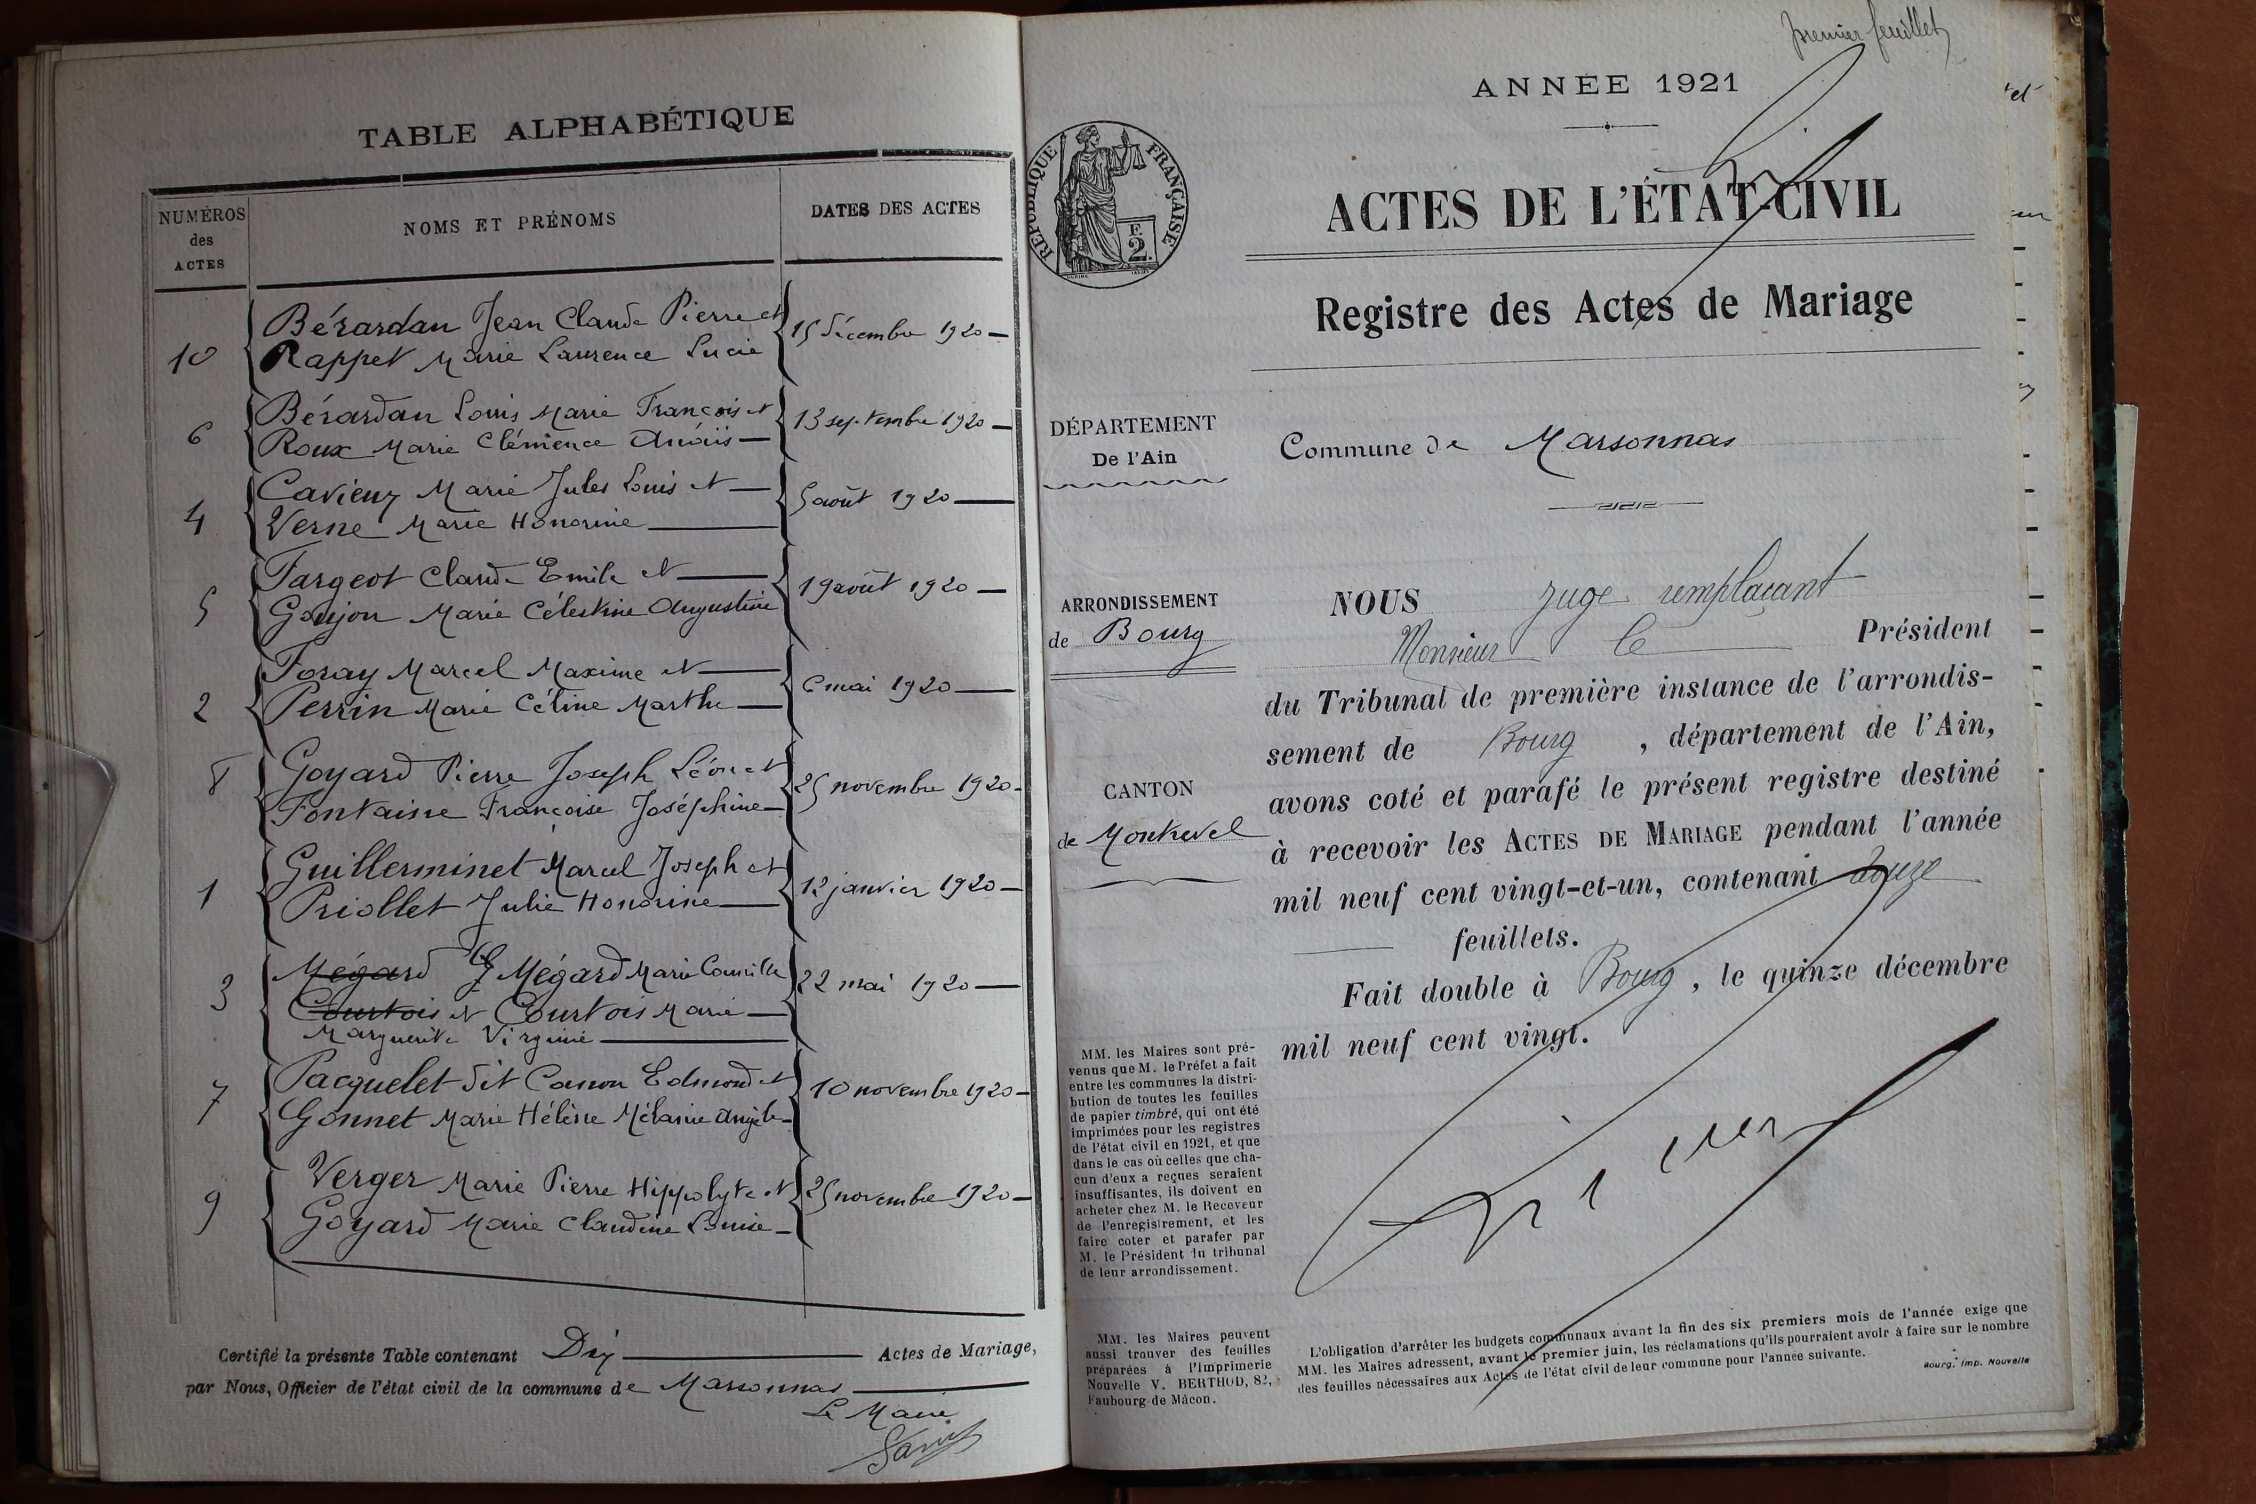 TABLE ALPHABÉTIQUE
NUMÉROS
des
ACTES
NOMS ET PRÉNOMS
DATES DES ACTES
10
Bérardan Jean Claude Pierre et
Rappet Marie Laurence Lucie
15 décembre 1920
6
Bérardan Louis Marie François et
Roux Marie Clémence Anaïs
13 septembre 1920
4
Marie Jules Louis et
Verne Marie Honorine
5 août 1920
5
Fargeot Claude Emile et
Goujon Marie Célestine Augustine
19 août 1920
2
Foray Marcel Maxime et
Perrin Marie Céline Marthe
6 mai 1920
8
Goyard Pierre Joseph Léon et
Fontaine Françoise Joséphine
25 novembre 1920
1
Guillerminet Marcel Joseph et
Priollet Julie Honorine
12 janvier 1920
3
Mégard Mégard Marie Camille
Courtois et Courtois Marie
Marguerite Virginie
22 mai 1920
7
Pacquelet dit Canon Edmond et
Gonnet Marie Hélène Mélanie Angèle
10 novembre 1920
9
Verger Marie Pierre Hippolyte et
Goyard Marie Claudine Louise
25 novembre 1920
Certifié la présente Table contenant Dix Actes de Mariage,
par Nous, Officier de l'état civil de la commune de Marsonnas
Le Maire
premier feuillet
ANNÉE 1921
RÉPUBLIQUE FRANÇAISE
F.
2.
ACTES DE L'ÉTAT-CIVIL
Registre des Actes de Mariage
DÉPARTEMENT
De l'Ain
Commune de Marsonnas
ARRONDISSEMENT
de Bourg
CANTON
de Montrevel
NOUS juge remplaçant
Monsieur le Président
du Tribunal de première instance de l'arrondis-
sement de Bourg, département de l'Ain,
avons coté et parafé le présent registre destiné
à recevoir les ACTES DE MARIAGE pendant l'année
mil neuf cent vingt-et-un, contenant douze
feuillets.
Fait double à Bourg, le quinze décembre
mil neuf cent vingt.
MM. les Maires sont pré-
venus que M. le Préfet a fait
entre les communes la distri-
bution de toutes les feuilles
de papier timbré, qui ont été
imprimées pour les registres
de l'état civil en 1921, et que
dans le cas où celles que cha-
cun d'eux a reçues seraient
insuffisantes, ils doivent en
acheter chez M. le Receveur
de l'enregistrement, et les
faire coter et parafer par
M. le Président du tribunal
de leur arrondissement.
MM. les Maires peuvent
aussi trouver des feuilles
préparées à l'Imprimerie
Nouvelle V. BERTHOD, 82,
Faubourg de Mâcon.
L'obligation d'arrêter les budgets communaux avant la fin des six premiers mois de l'année exige que
MM. les Maires adressent, avant le premier juin, les réclamations qu'ils pourraient avoir à faire sur le nombre
des feuilles nécessaires aux Actes de l'état civil de leur commune pour l'année suivante.
Bourg, Imp. Nouvelle